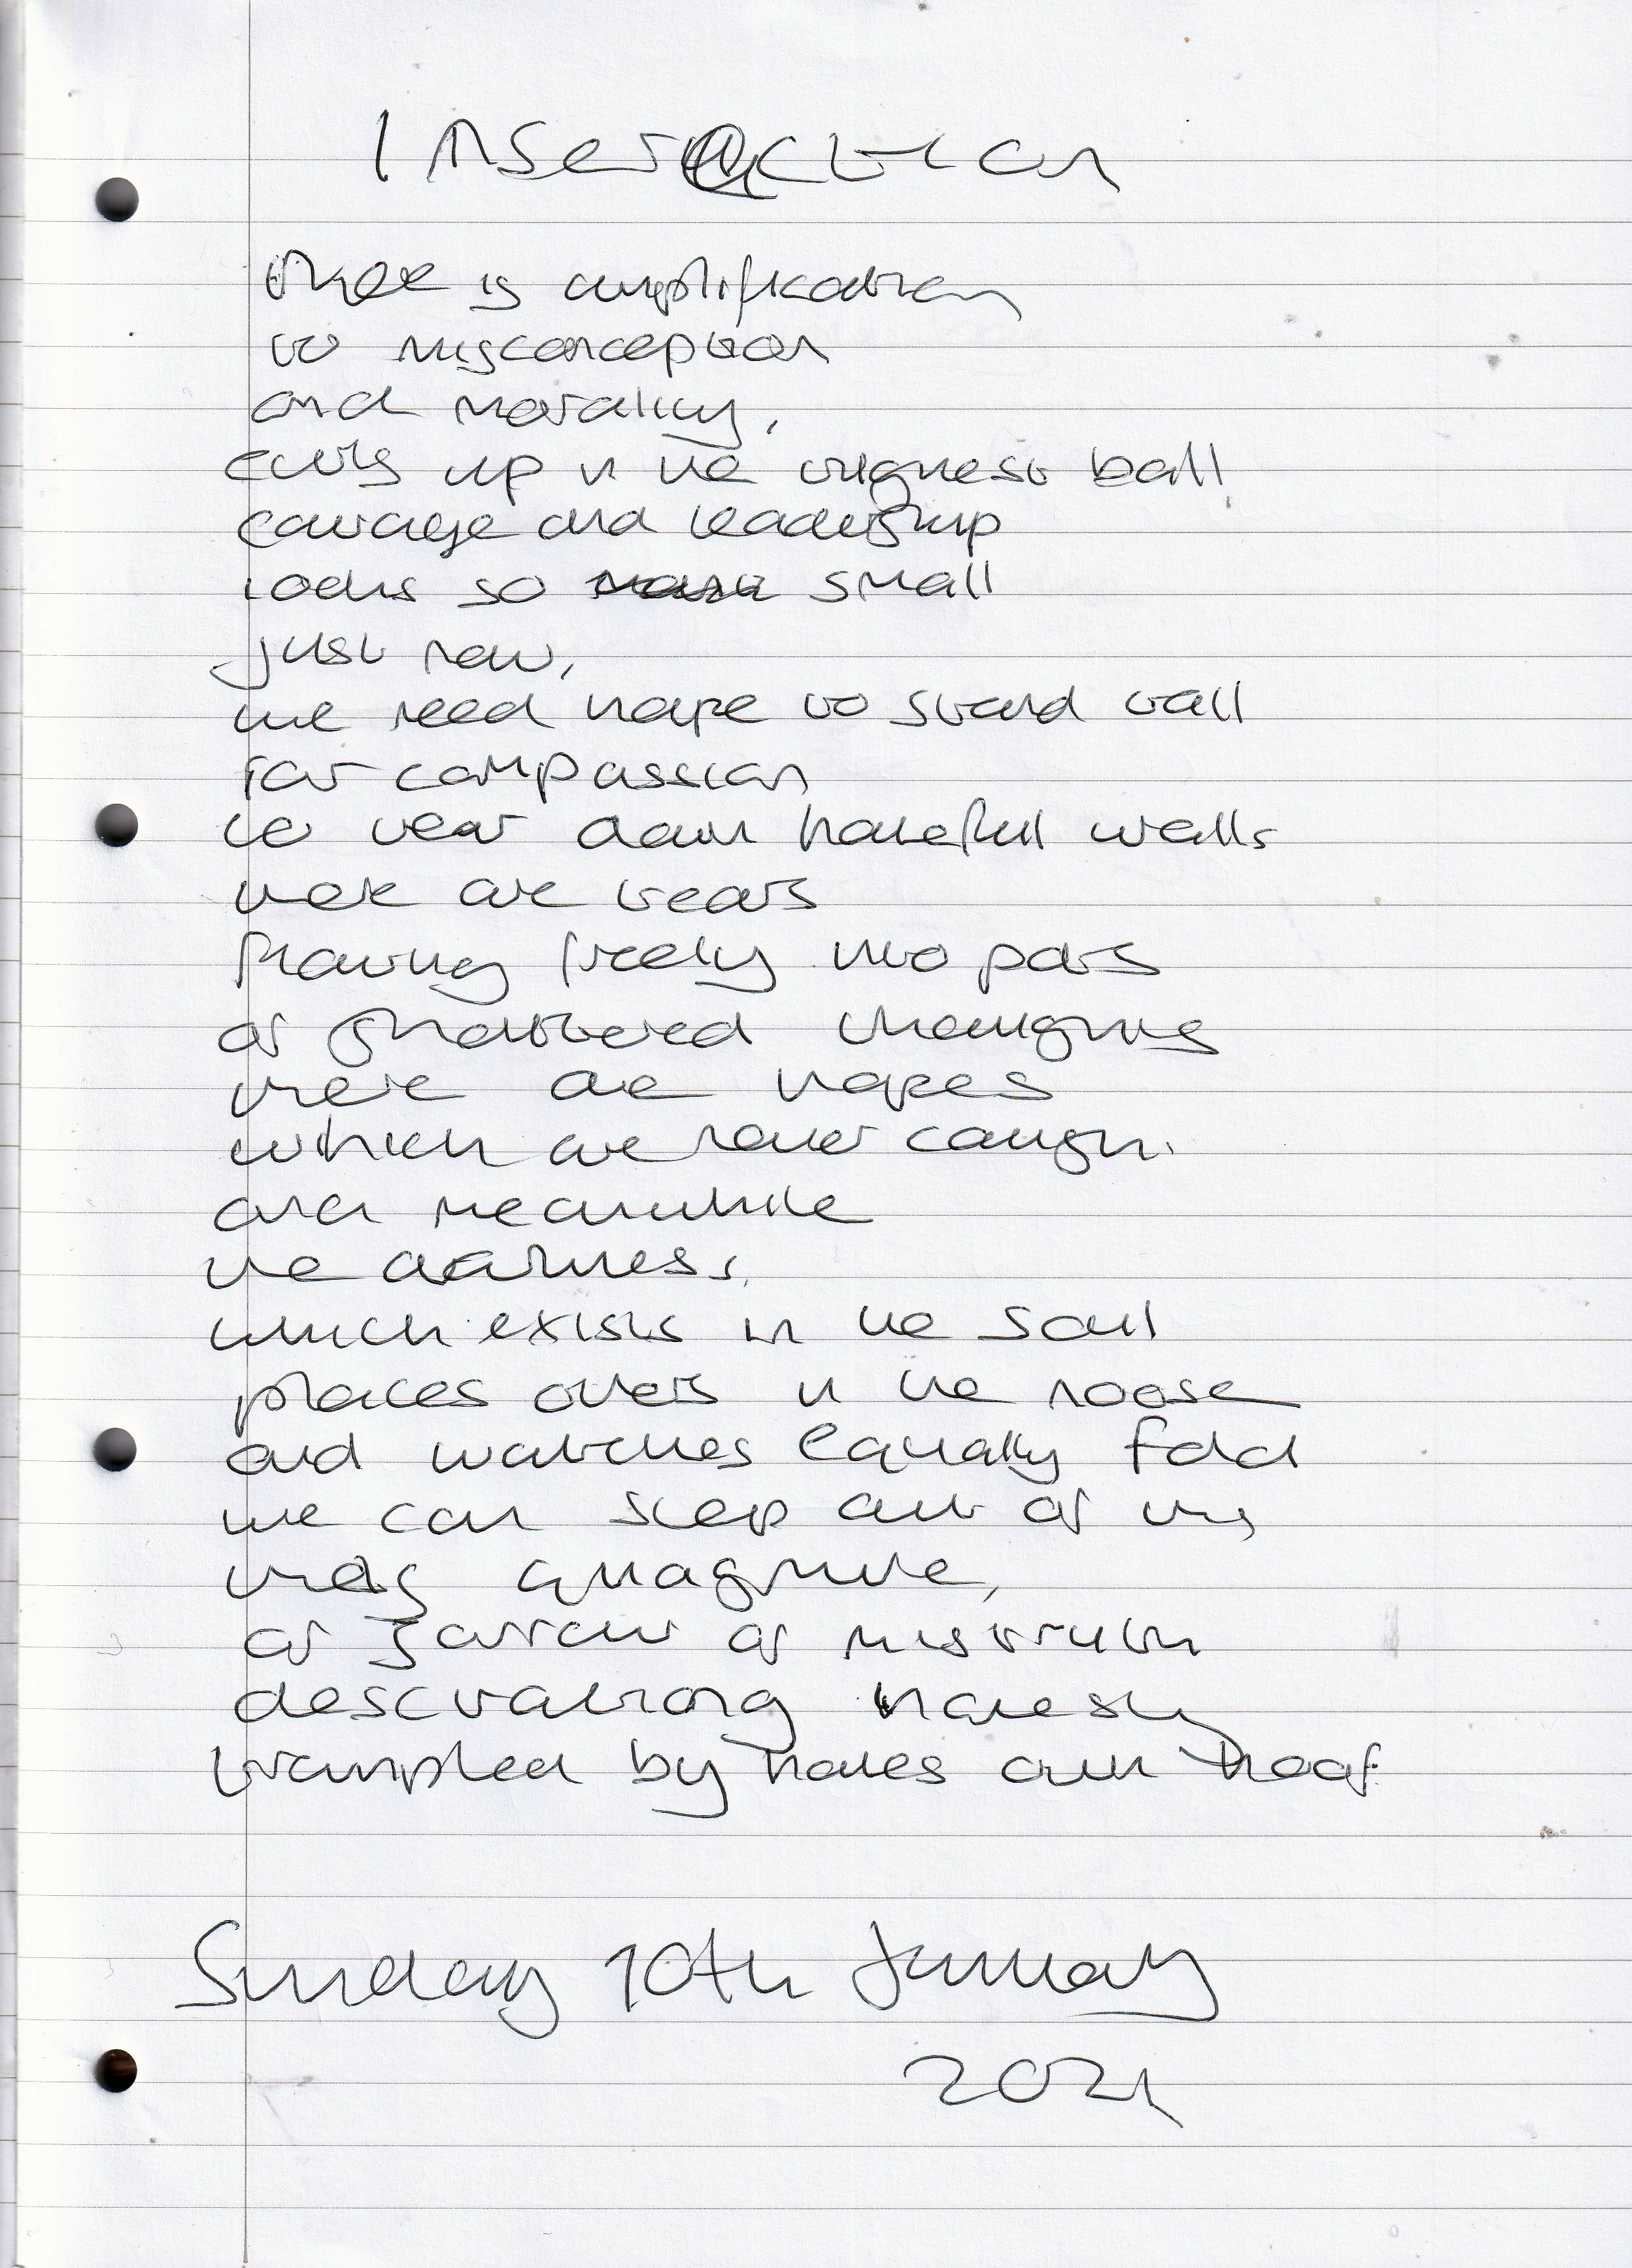 there is amplification
to misconception
and morality,
curls up in the tightest ball
courage and leadership
looks so small
just now,
we need hope to stand tall
for compassion
to tear down hateful walls
there are tears
flowing freely into pots
of shattered thoughts
there are hopes
which are never caught.
and meanwhile
the darkness,
which exists in the soul
places others in the noose
and watches equally fold
we can step out of this
quagmire,
of sorrow of mistruth
trampled by hates own hoof
Sunday 10th January
2021